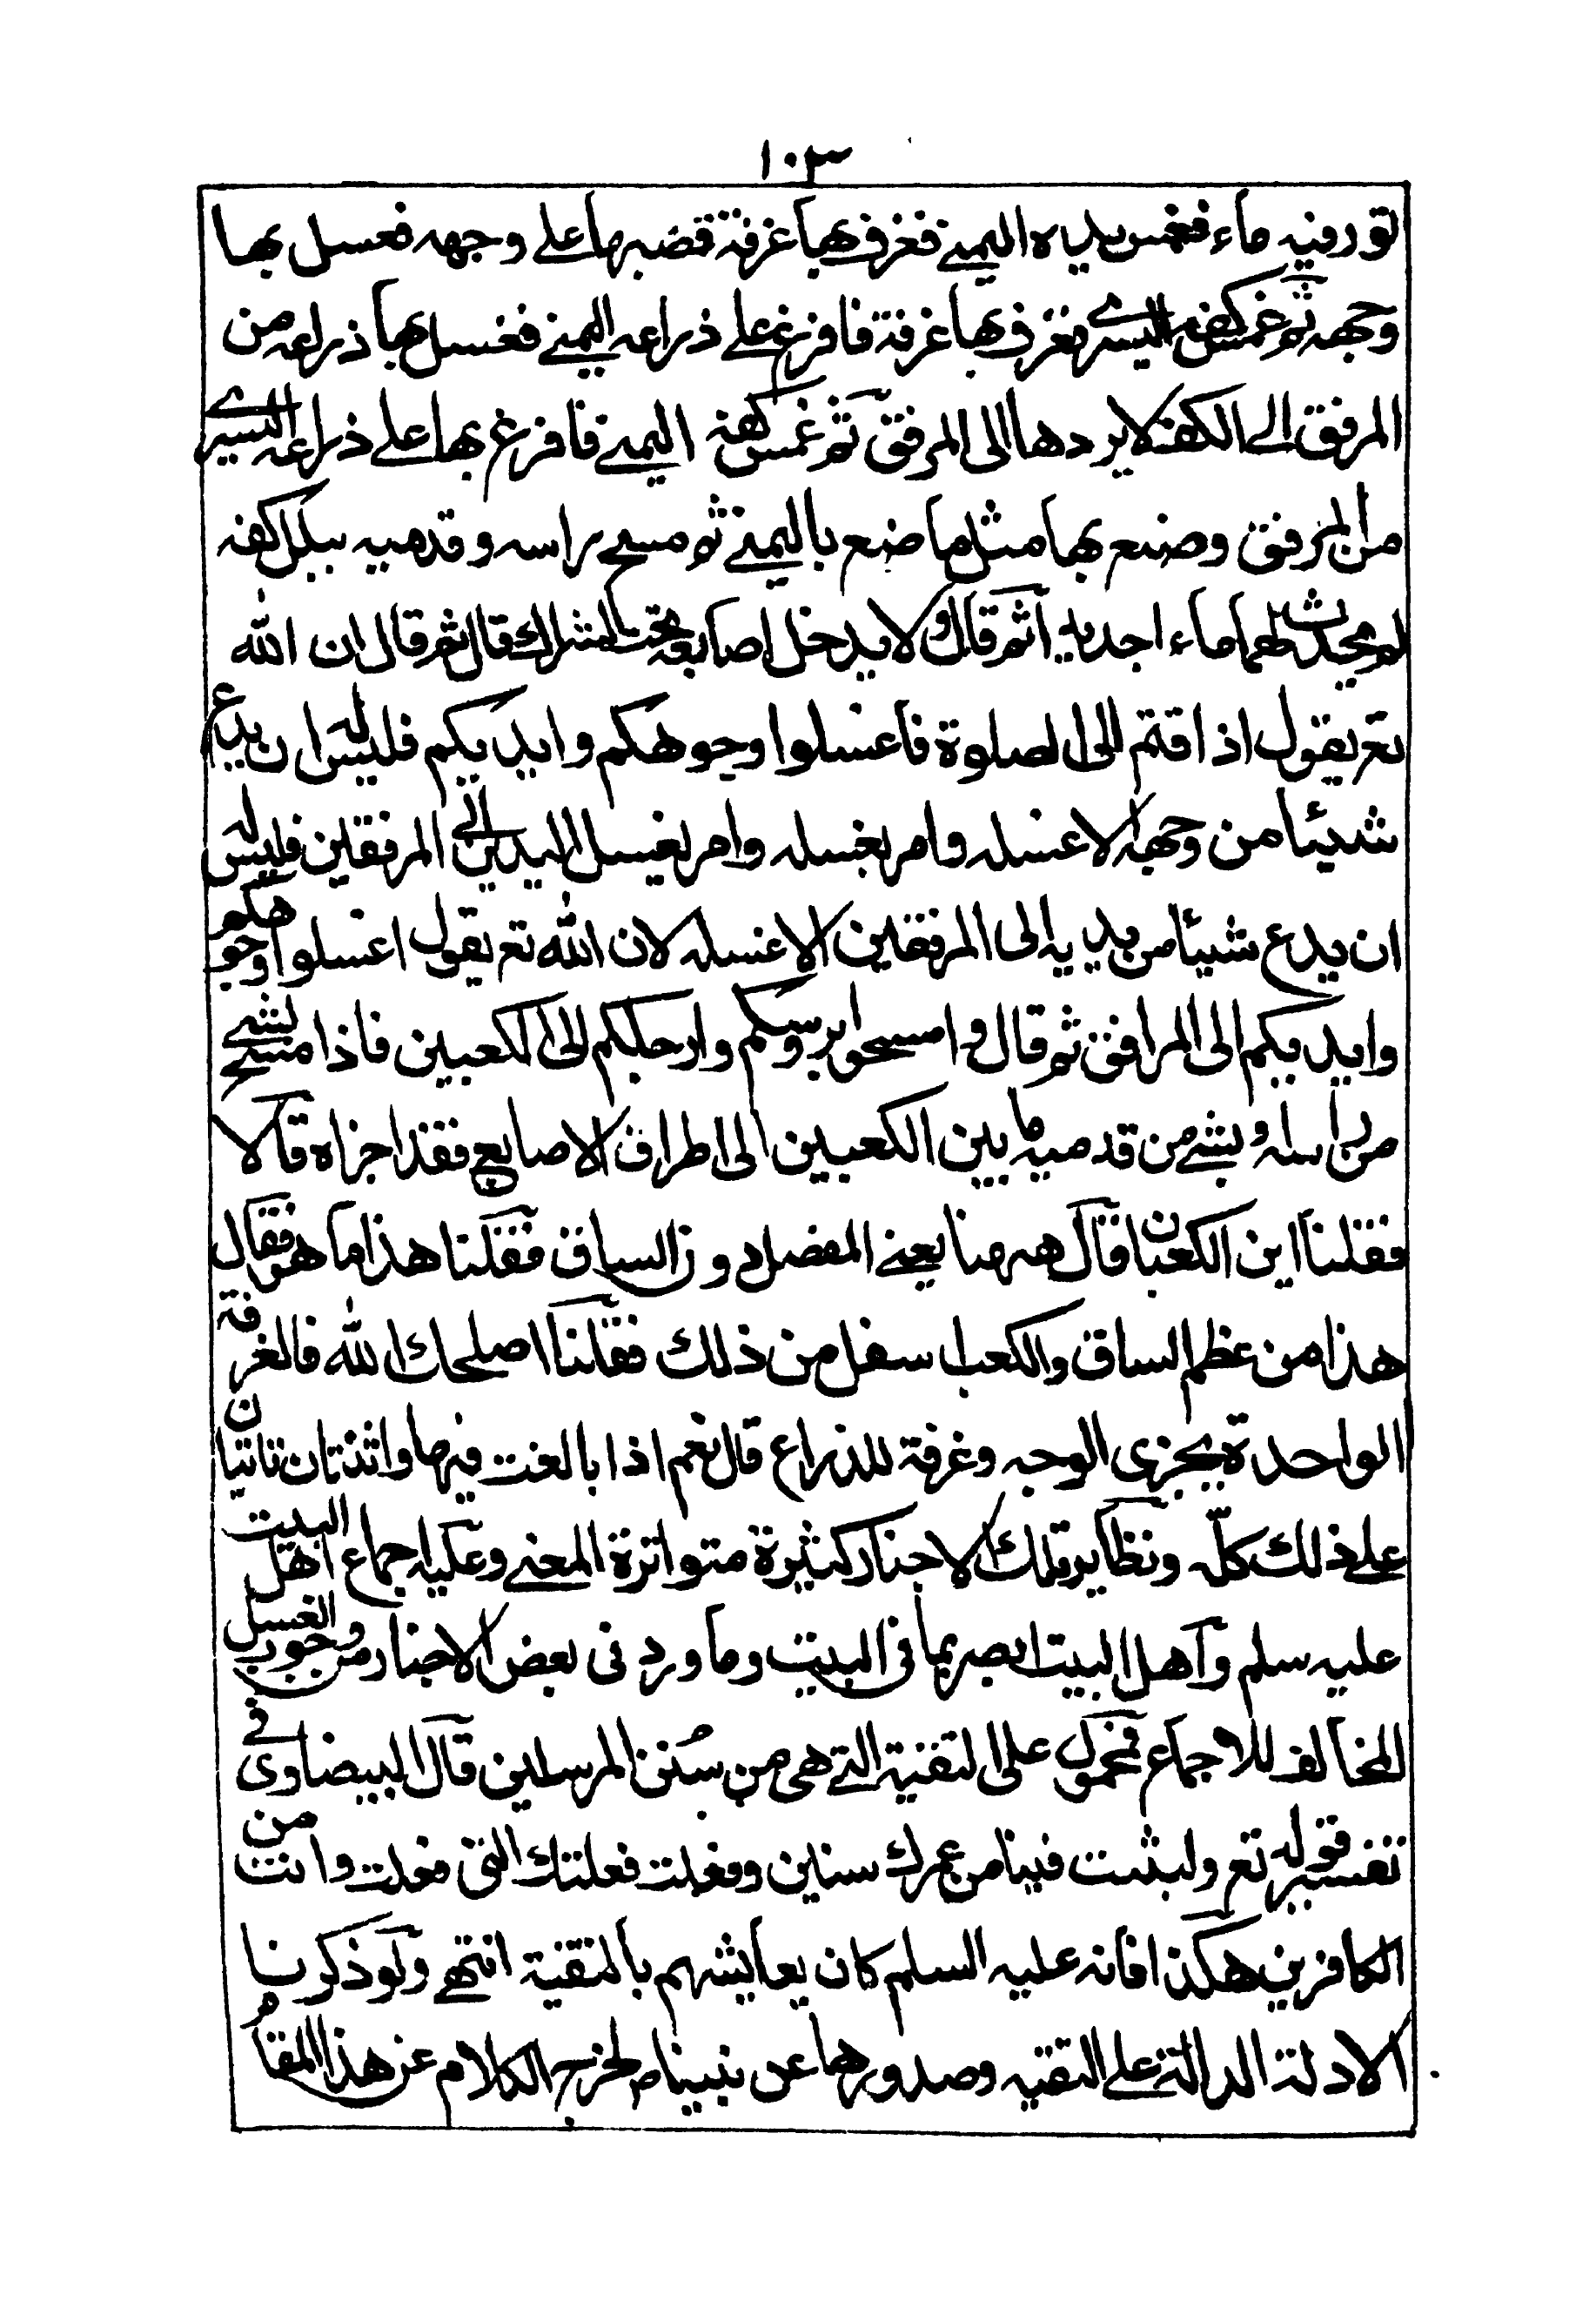 ١٠٣
تور فيه ماء فغمس يده اليمنى فغرف بها غرفة فصبها على وجهه فغسل بها
وجهه ثم غمس كفه اليسرى فغرف بها غرفة فافرغ على ذراعه اليمنى فغسل بها ذراعه من
المرفق الى الكف لا يردها الى المرفق ثم غمس كفه اليمنى فافرغ بها على ذراعه اليسرى
من المرفق وصنع بها مثل ما صنع باليمنى ثم مسح راسه وقدميه ببلل كفه
لم يحدث لهما ماء اجديدا ثم قال ولا يدخل اصابعه تحت الشراك قال ثم قال ان الله
تعـ يقول اذا قمتم الى الصلوة فاغسلوا وجوهكم وايديكم فليس له ان يدع
شيئا من وجهه الا غسله وامر بغسله وامر بغسل اليدين الى المرفقين فليس له
ان يدع شيئا من يديه الى المرفقين الا غسله لان الله تعـ يقول اغسلوا وجوهكم
وايديكم الى المرافق ثم قال وامسحوا برؤسكم وارجلكم الى الكعبين فاذا مسح بشئ
من راسه وبشئ من قدميه ما بين الكعبين الى اطراف الاصابع فقد اجزاه قالا
فقلنا اين الكعبان قال ههنا يعنى المفصل دون الساق فقلنا هذا ما هو فقال
هذا من عظم الساق والكعب اسفل من ذلك فقلنا اصلحك الله فالغرفة
الواحدة يجزى الوجه وغرفة للذراع قال نعم اذا بالغت فيها واثنتان تاتيان
على ذلك كلّه ونظاير تلك الاخبار كثيرة متواترة المعنى وعليه اجماع اهل البيت
عليه سلم واهل البيت ابصر بما فى البيت وما ورد فى بعض الاخبار من وجوب الغسل
المخالف للاجماع فمحمول على التقية التى هى من سُنن المرسلين قال البيضاوى فى
تفسير قوله تعـ ولبثت فينا من عمرك سنين وفعلت فعلتك التى فعلت وانت من
الكافرين هكذا فانه عليه السلم كان يعايشهم بالتقية انتهى ولو ذكرنا
الادلة الدالة على التقيه وصدورها عن نبيناص لخرج الكلام عن هذا المقام